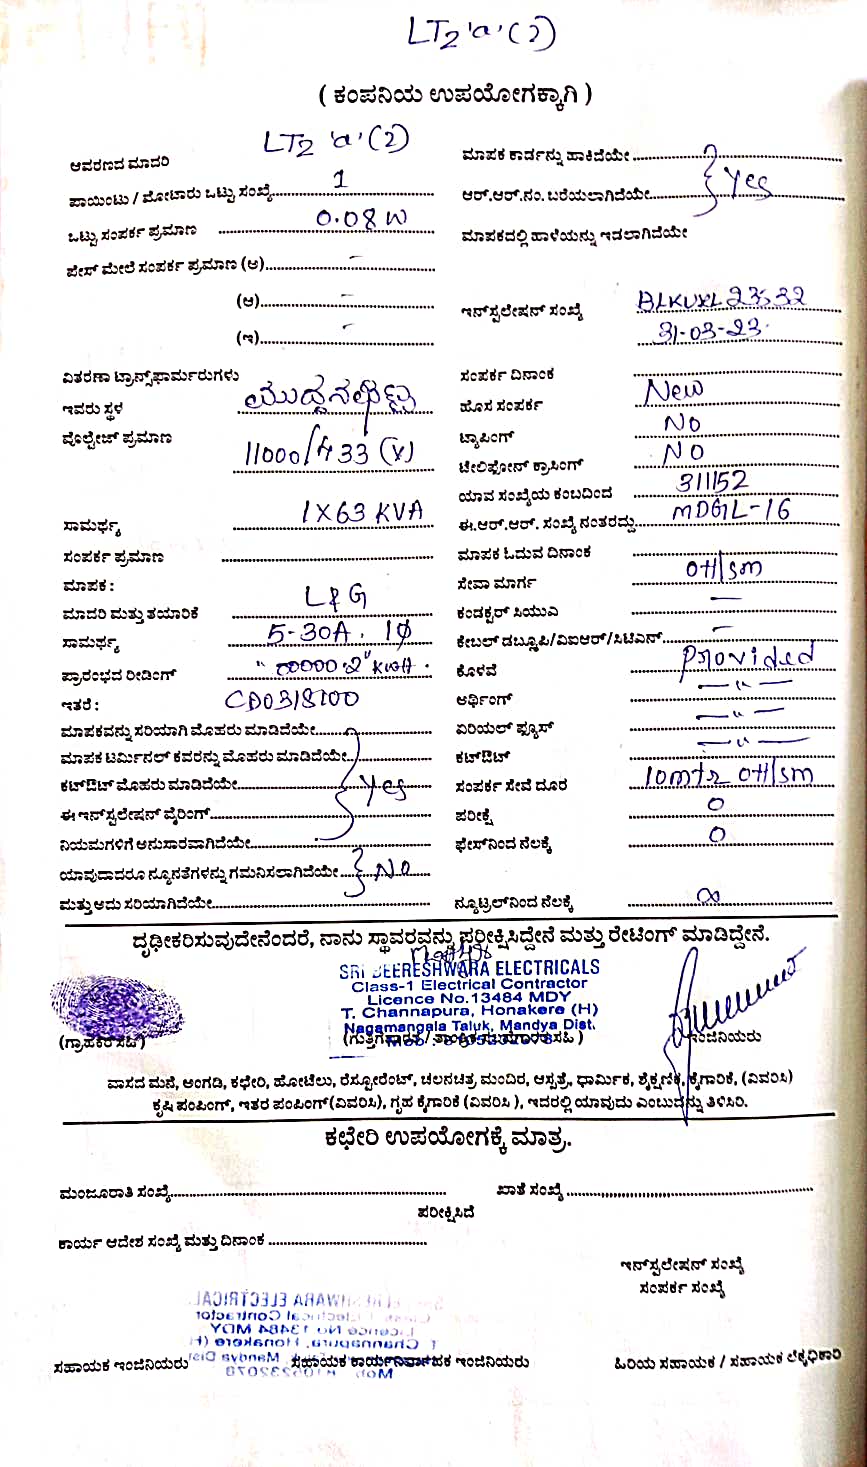 LT2 'a' (2)
( ಕಂಪನಿಯ ಉಪಯೋಗಕ್ಕಾಗಿ )
ಆವರಣದ ಮಾದರಿ LT2 'a' (2)
ಮಾಪಕ ಕಾರ್ಡನ್ನು ಹಾಕಿದೆಯೇ
ಪಾಯಿಂಟು / ಮೋಟಾರು ಒಟ್ಟು ಸಂಖ್ಯೆ 1
ಆರ್.ಆರ್.ನಂ. ಬರೆಯಲಾಗಿದೆಯೇ Yes
ಒಟ್ಟು ಸಂಪರ್ಕ ಪ್ರಮಾಣ 0.08 W
ಮಾಪಕದಲ್ಲಿ ಹಾಳೆಯನ್ನು ಇಡಲಾಗಿದೆಯೇ
ಫೇಸ್ ಮೇಲೆ ಸಂಪರ್ಕ ಪ್ರಮಾಣ (ಅ) -
(ಆ) -
(ಇ) -
ಇನ್‌ಸ್ಟಲೇಷನ್ ಸಂಖ್ಯೆ BLKUXL 23532
31-03-23
ವಿತರಣಾ ಟ್ರಾನ್ಸ್‌ಫಾರ್ಮರುಗಳು
ಸಂಪರ್ಕ ದಿನಾಂಕ
ಇವರು ಸ್ಥಳ
ಹೊಸ ಸಂಪರ್ಕ New
ವೋಲ್ಟೇಜ್ ಪ್ರಮಾಣ 11000/433 (V)
ಟ್ಯಾಪಿಂಗ್ NO
ಟೇಲಿಫೋನ್ ಕ್ರಾಸಿಂಗ್ NO
ಯಾವ ಸಂಖ್ಯೆಯ ಕಂಬದಿಂದ 311152
ಸಾಮರ್ಥ್ಯ 1X63 KVA
ಈ.ಆರ್.ಆರ್. ಸಂಖ್ಯೆ ನಂತರದ್ದು MDGL-16
ಸಂಪರ್ಕ ಪ್ರಮಾಣ
ಮಾಪಕ ಓದುವ ದಿನಾಂಕ
ಮಾಪಕ :
ಸೇವಾ ಮಾರ್ಗ OH/SM
ಮಾದರಿ ಮತ್ತು ತಯಾರಿಕೆ L&G
ಕಂಡಕ್ಟರ್ ಸಿಯುವಿ -
ಸಾಮರ್ಥ್ಯ 5-30A. 1φ
ಕೇಬಲ್ ಡಬ್ಲೂಪಿ/ವಿಐಆರ್/ಸಿಟಿಎನ್ -
ಪ್ರಾರಂಭದ ರೀಡಿಂಗ್ "00000.2" KWH.
ಕೊಳವೆ Provided
ಇತರೆ : CD0318100
ಅರ್ಥಿಂಗ್ — " —
ಮಾಪಕವನ್ನು ಸರಿಯಾಗಿ ಮೊಹರು ಮಾಡಿದೆಯೇ
ಏರಿಯಲ್ ಫ್ಯೂಸ್ — " —
ಮಾಪಕ ಟರ್ಮಿನಲ್ ಕವರನ್ನು ಮೊಹರು ಮಾಡಿದೆಯೇ
ಕಟ್‌ಔಟ್ — " —
ಕಟ್‌ಔಟ್ ಮೊಹರು ಮಾಡಿದೆಯೇ Yes
ಸಂಪರ್ಕ ಸೇವೆ ದೂರ 10mtr OH/SM
ಈ ಇನ್‌ಸ್ಟಲೇಷನ್ ವೈರಿಂಗ್
ಪರೀಕ್ಷೆ 0
ನಿಯಮಗಳಿಗೆ ಅನುಸಾರವಾಗಿದೆಯೇ
ಫೇಸ್‌ನಿಂದ ನೆಲಕ್ಕೆ 0
ಯಾವುದಾದರೂ ನ್ಯೂನತೆಗಳನ್ನು ಗಮನಿಸಲಾಗಿದೆಯೇ No
ಮತ್ತು ಅದು ಸರಿಯಾಗಿದೆಯೇ
ನ್ಯೂಟ್ರಲ್‌ನಿಂದ ನೆಲಕ್ಕೆ ∞
ದೃಢೀಕರಿಸುವುದೇನೆಂದರೆ, ನಾನು ಸ್ಥಾವರವನ್ನು ಪರೀಕ್ಷಿಸಿದ್ದೇನೆ ಮತ್ತು ರೇಟಿಂಗ್ ಮಾಡಿದ್ದೇನೆ.
SRI BEERESHWARA ELECTRICALS
Class-1 Electrical Contractor
Licence No.13484 MDY
T. Channapura, Honakere (H)
Nagamangala Taluk, Mandya Dist.
(ಗ್ರಾಹಕರ ಸಹಿ)
ಇಂಜಿನಿಯರು
ವಾಸದ ಮನೆ, ಅಂಗಡಿ, ಕಛೇರಿ, ಹೋಟೆಲು, ರೆಸ್ಟೋರೆಂಟ್, ಚಲನಚಿತ್ರ ಮಂದಿರ, ಆಸ್ಪತ್ರೆ, ಧಾರ್ಮಿಕ, ಶೈಕ್ಷಣಿಕ, ಕೈಗಾರಿಕೆ, (ವಿವರಿಸಿ)
ಕೃಷಿ ಪಂಪಿಂಗ್, ಇತರ ಪಂಪಿಂಗ್(ವಿವರಿಸಿ), ಗೃಹ ಕೈಗಾರಿಕೆ (ವಿವರಿಸಿ ), ಇದರಲ್ಲಿ ಯಾವುದು ಎಂಬುದನ್ನು ತಿಳಿಸಿರಿ.
ಕಛೇರಿ ಉಪಯೋಗಕ್ಕೆ ಮಾತ್ರ.
ಮಂಜೂರಾತಿ ಸಂಖ್ಯೆ
ಖಾತೆ ಸಂಖ್ಯೆ
ಪರೀಕ್ಷಿಸಿದೆ
ಕಾರ್ಯ ಆದೇಶ ಸಂಖ್ಯೆ ಮತ್ತು ದಿನಾಂಕ
ಇನ್‌ಸ್ಟಲೇಷನ್ ಸಂಖ್ಯೆ
ಸಂಪರ್ಕ ಸಂಖ್ಯೆ
ಸಹಾಯಕ ಇಂಜಿನಿಯರು
ಸಹಾಯಕ ಕಾರ್ಯನಿರ್ವಾಹಕ ಇಂಜಿನಿಯರು
ಹಿರಿಯ ಸಹಾಯಕ / ಸಹಾಯಕ ಲೆಕ್ಕಧಿಕಾರಿ